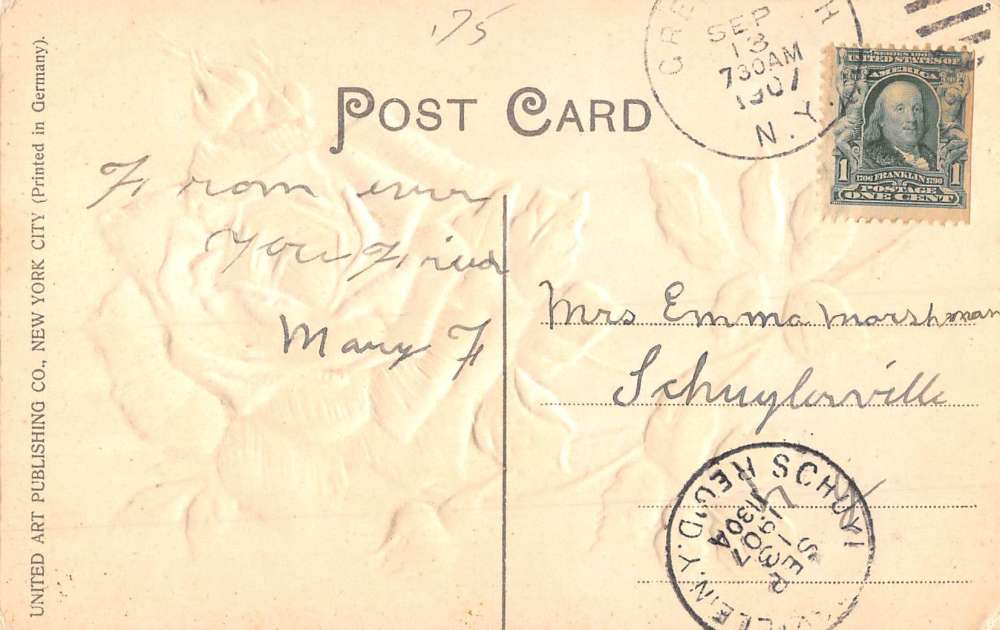 175
POST CARD
UNITED ART PUBLISHING CO., NEW YORK CITY (Printed in Germany).
SEP
13
730AM
1907
N.Y.
SERIES 1902
UNITED STATES OF
AMERICA
1 1
1706 FRANKLIN 1790
POSTAGE
ONE CENT
From ever
You Friend
Mary F
Mrs Emma Marshman
Schuylerville
SCHUYL
N.Y.
REC'D.
SEP
13
1130A
1907